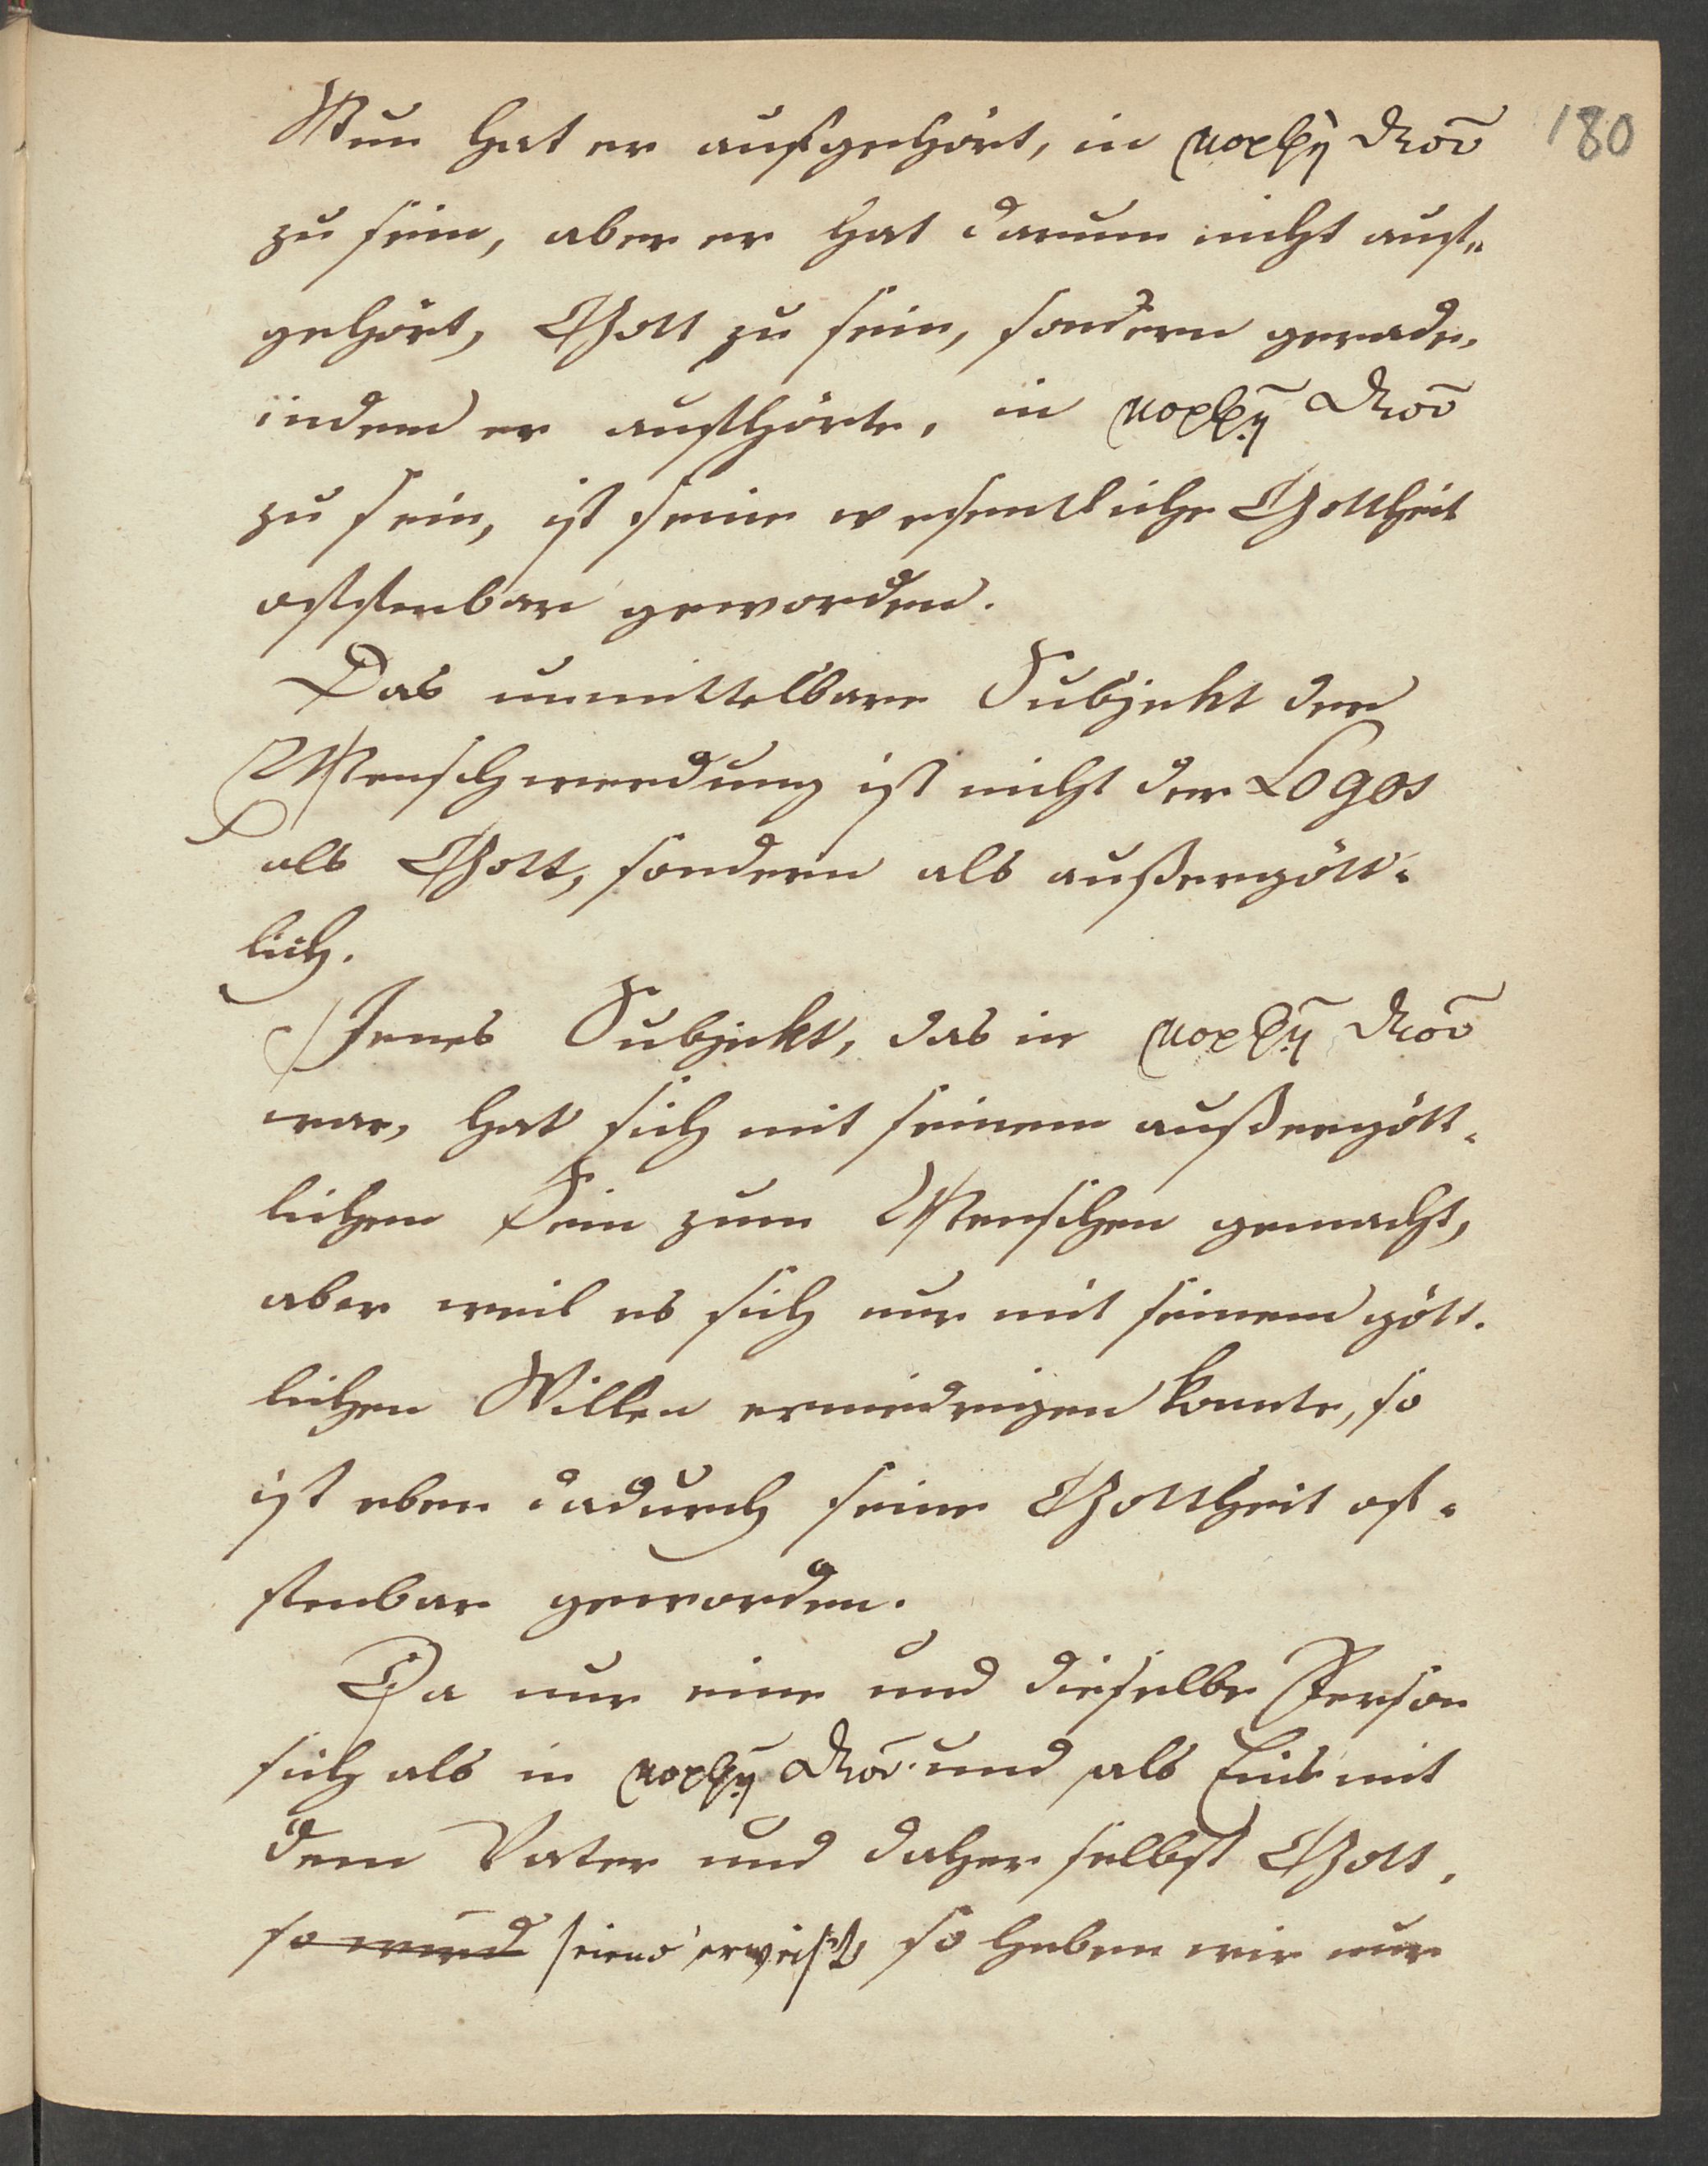 180
Nun hat er aufgehört, in μορφῇ θεοῦ
zu sein, aber er hat darum nicht auf-
gehört, Gott zu sein, sondern gerade,
indem er aufhörte, in μορφῇ θεοῦ
zu sein, ist seine wesentliche Gottheit
offenbar geworden.
Das unmittelbare Subjekt der
Menschwerdung ist nicht der Logos
als Gott, sondern als außergött-
lich.
Jenes Subjekt, das in μορφῇ θεοῦ
war, hat sich mit seinem außergött-
lichem Sein zum Menschen gemacht,
aber weil es sich nur mit seinem gött-
lichen Willen erniedrigen konnte, so
ist eben dadurch seine Gottheit of-
fenbar geworden.
Da nur eine und dieselbe Person
sich als in μορφῇ θεοῦ und als Eins mit
dem Vater und daher selbst Gott,
so wird seiend erweist, so haben wir nur